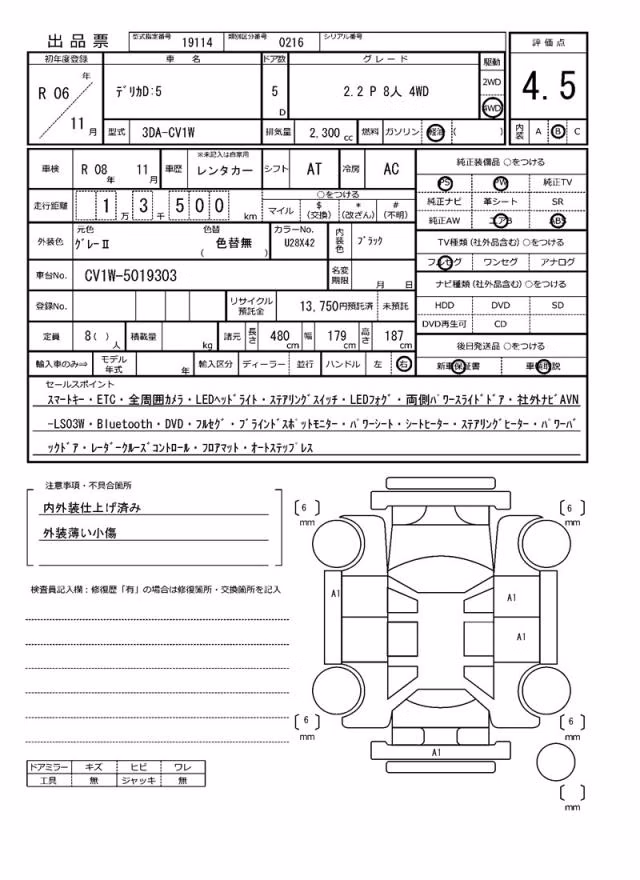 出品票 型式指定番号 19114 類別区分番号 0216 シリアル番号
初年度登録 車名 ドア数 グレード 駆動 評価点
R 06 年 11 月 デリカD:5 5 D 2.2 P 8人 4WD 2WD 4WD 4.5
型式 3DA-CV1W 排気量 2,300 cc 燃料 ガソリン 軽油 ( ) 内装 A B C
車検 R 08 年 11 月 車歴 ※未記入は自家用 レンタカー シフト AT 冷房 AC
純正装備品 ○をつける
PS PW 純正TV
純正ナビ 革シート SR
純正AW エアB ABS
走行距離 1 万 3 千 5 0 0 km ○をつける マイル $ (交換) * (改ざん) # (不明)
外装色 元色 グレーII 色替 色替無 ( ) カラーNo. U28X42 内装色 ブラック
TV種類 (社外品含む) ○をつける
フルセグ ワンセグ アナログ
車台No. CV1W-5019303 名変期限 月 日
ナビ種類 (社外品含む) ○をつける
HDD DVD SD
DVD再生可 CD
登録No. リサイクル預託金 13,750円預託済 未預託
定員 8( ) 人 積載量 kg 諸元 長さ 480 cm 幅 179 cm 高さ 187 cm
後日発送品 ○をつける
新車保証書 車輌取説
輸入車のみ⇒ モデル年式 年 輸入区分 ディーラー 並行 ハンドル 左 右
セールスポイント
スマートキー・ETC・全周囲カメラ・LEDヘッドライト・ステアリングスイッチ・LEDフォグ・両側パワースライドドア・社外ナビAVN
-LS03W・Bluetooth・DVD・フルセグ・ブラインドスポットモニター・パワーシート・シートヒーター・ステアリングヒーター・パワーバ
ックドア・レーダークルーズコントロール・フロアマット・オートステップレス
注意事項・不具合箇所
内外装仕上げ済み
外装薄い小傷
検査員記入欄:修復歴「有」の場合は修復箇所・交換箇所を記入
6 mm 6 mm
A1 A1
A1
6 mm 6 mm
A1
mm
ドアミラー キズ ヒビ ワレ
工具 無 ジャッキ 無